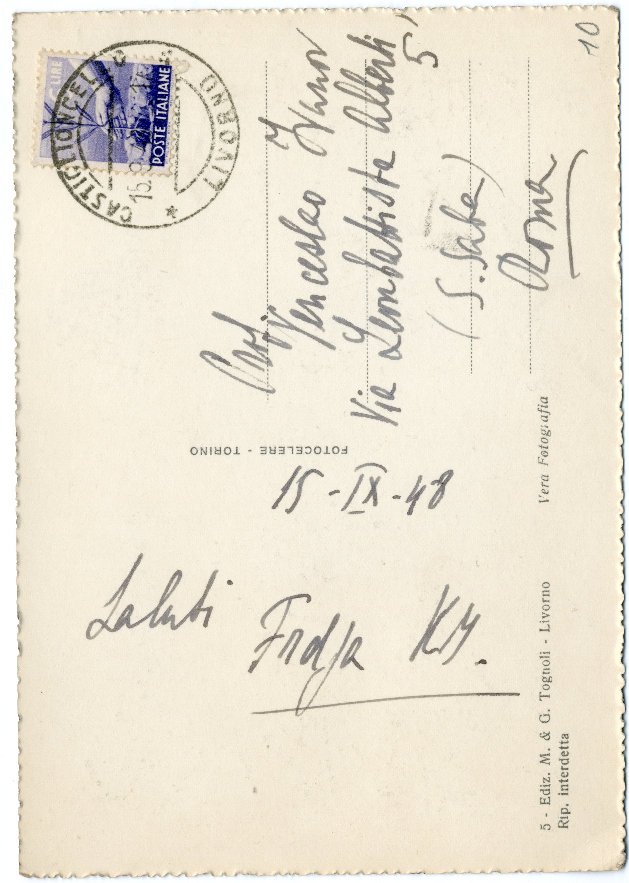 10
LIRE
POSTE ITALIANE
CASTIGLIONCELLO
LIVORNO
15.9
Prof.
Venceslao Ivanov
Via Leonbattista Alberti,
5
(S. Saba)
Roma
FOTOCELERE - TORINO
15-IX-48
Saluti
Fidja
5 - Ediz. M. & G. Tognoli - Livorno Vera Fotografia
Rip. interdetta